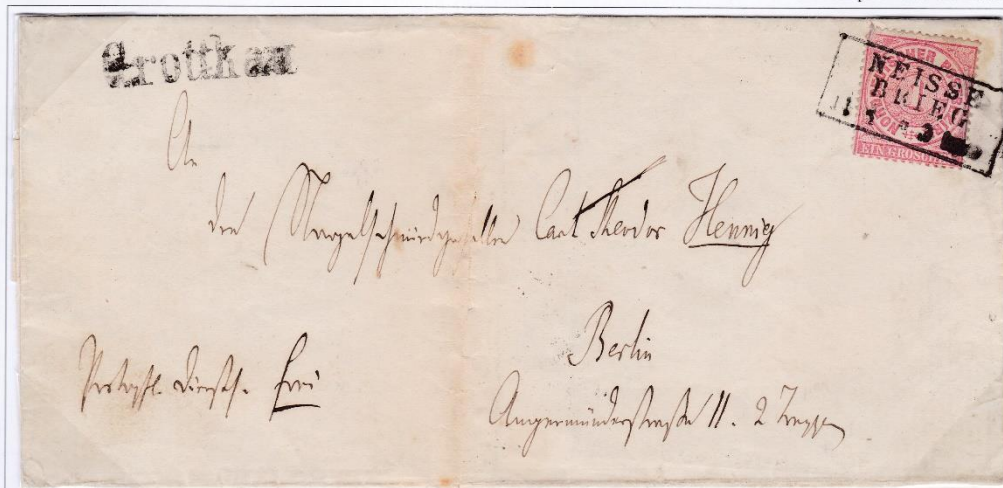 Grottkau
NEISSE
BRIEG
EIN GROSCHEN
An
den Nagelschmiedgesellen Carl Theodor Hennig
Berlin
frei
Angermünderstraße 11. 2 Treppen